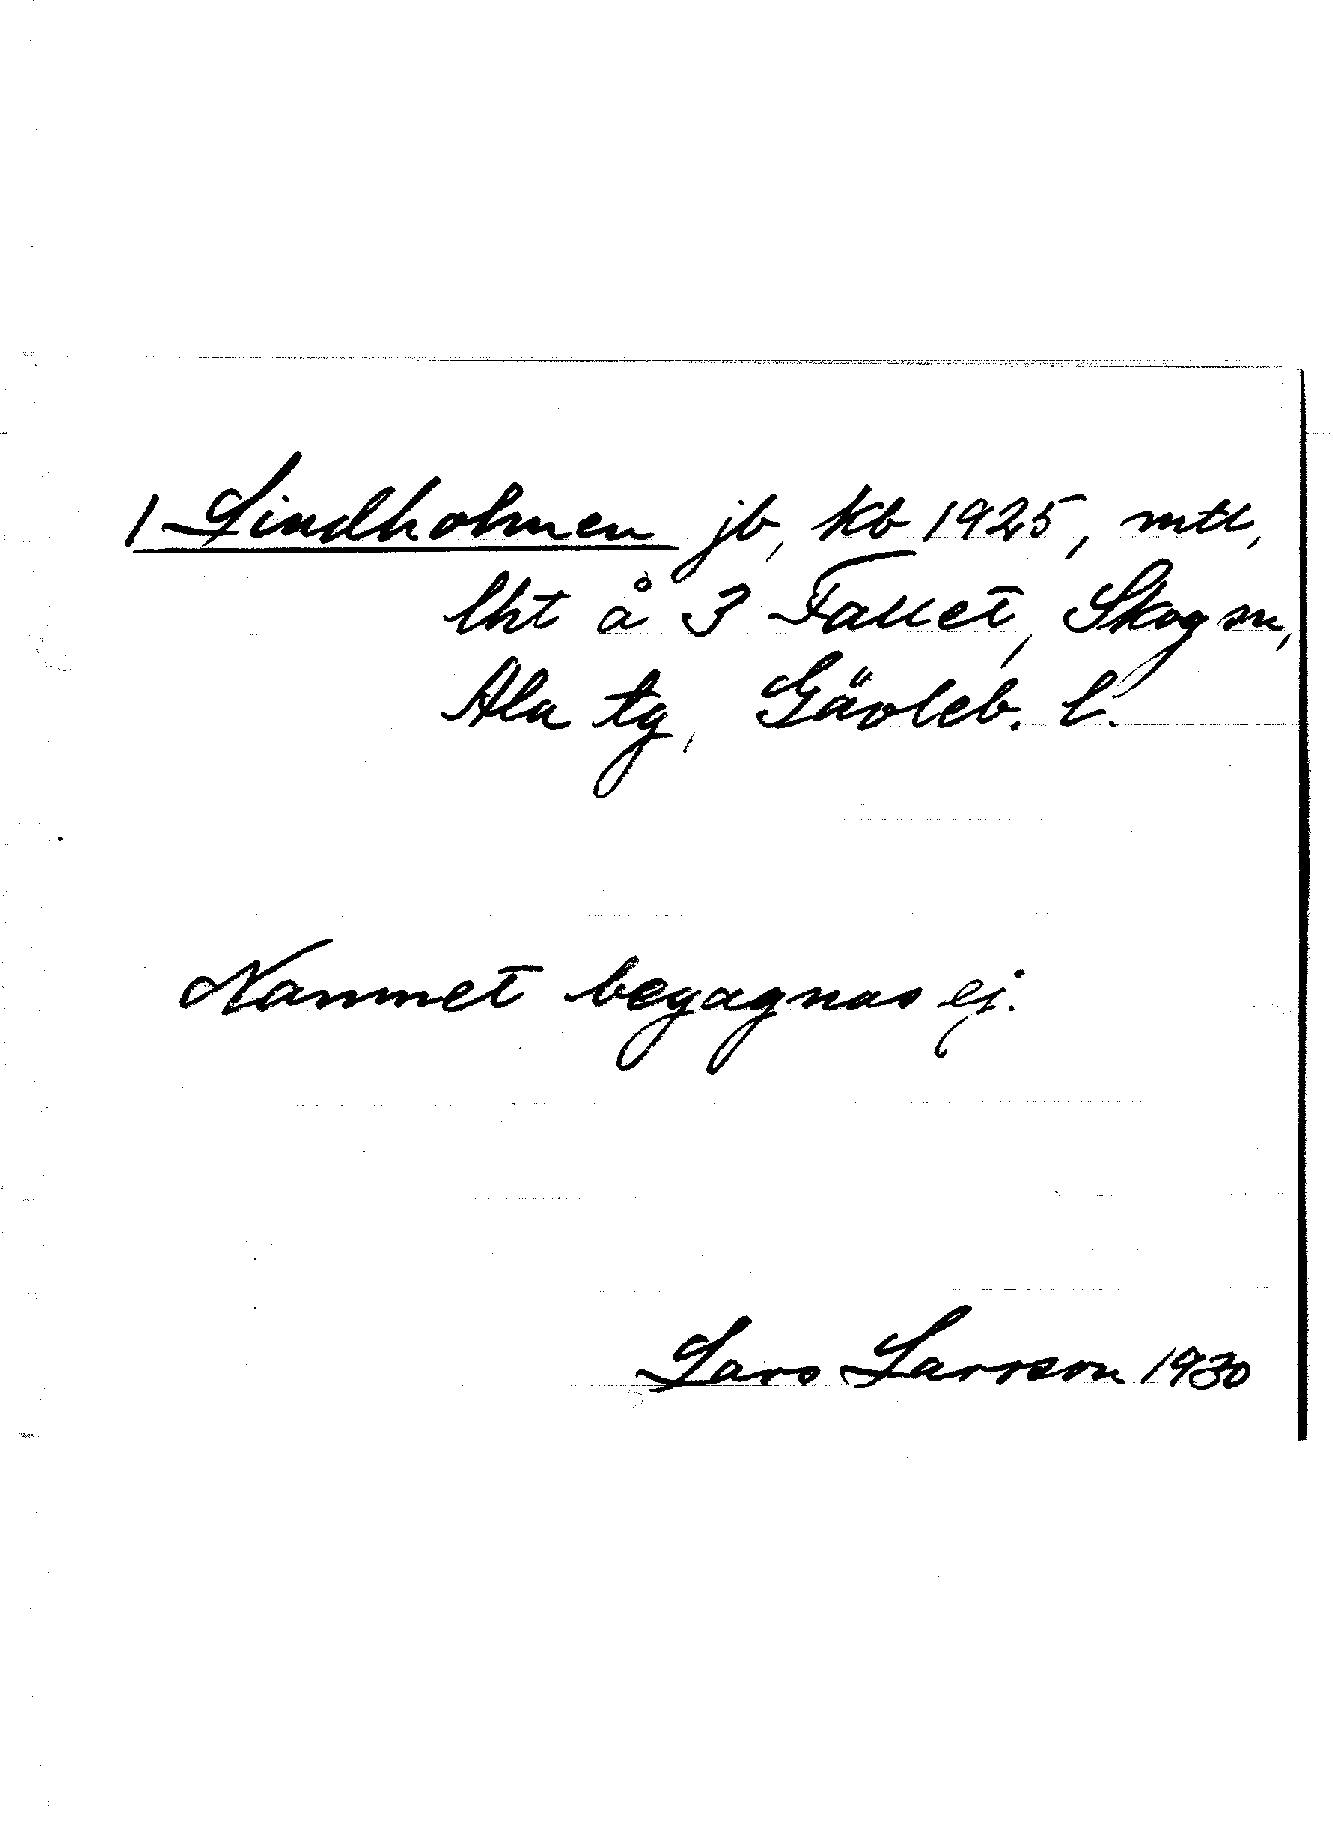 1 Lindholmen jb, kb 1925, mtl,
lht å 3 Fallet, Skog sn,
Ala tg, Gävleb. l.
Namnet begagnas ej.
Lars Larsson 1930